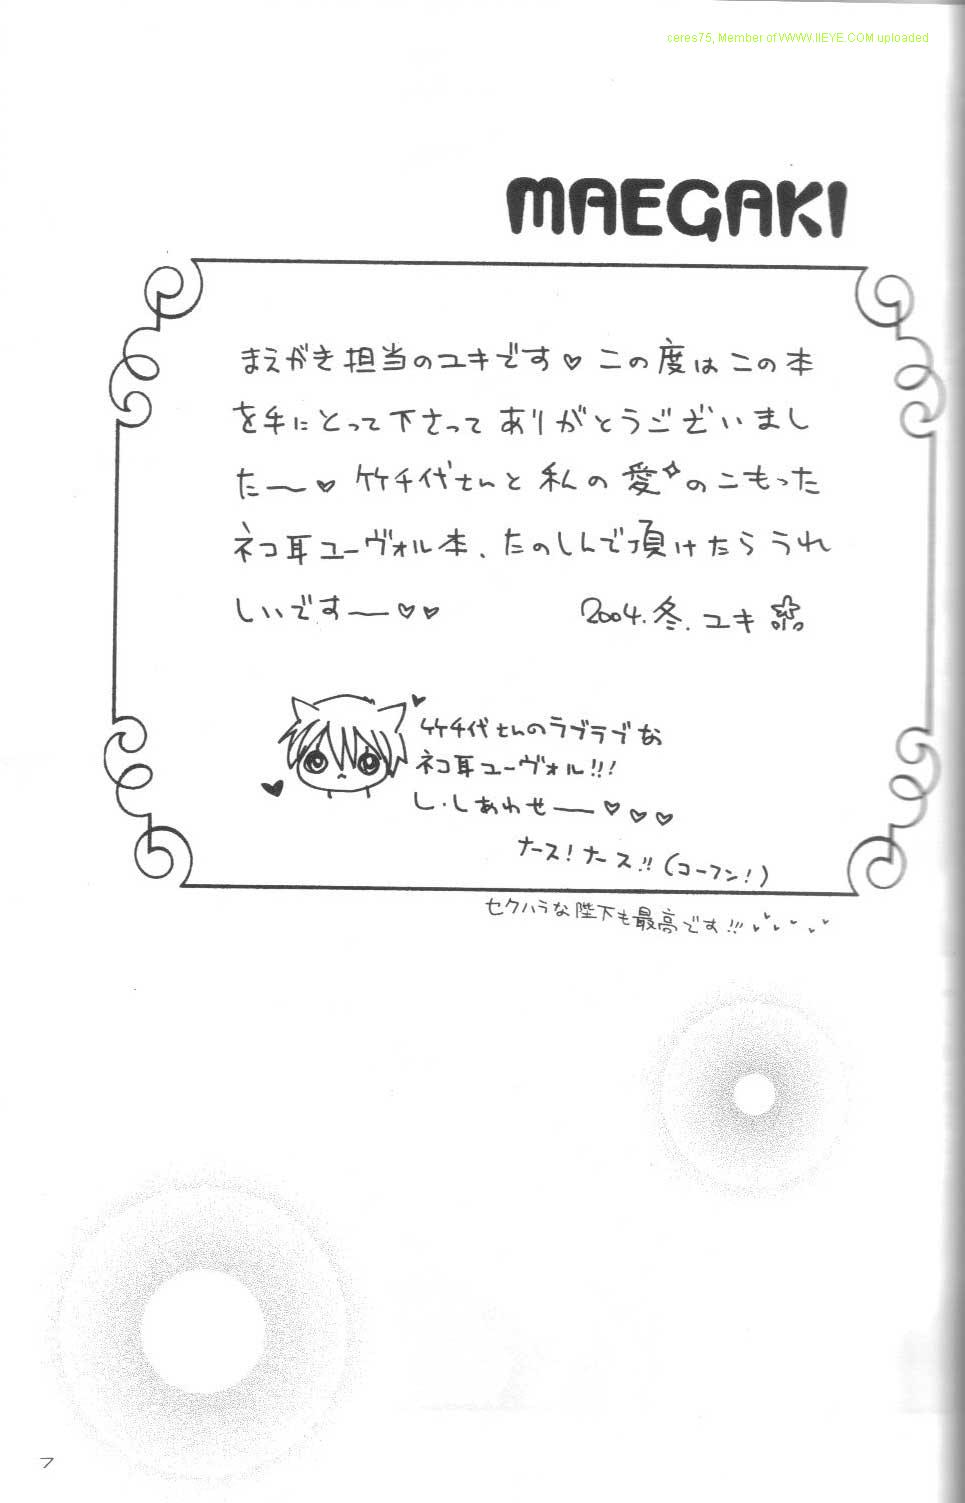 ceres75, Member of WWW.IIEYE.COM uploaded
MAEGAKI
まえがき担当のユキです♡ この度はこの本
を手にとって下さってありがとうございまし
たー♡ 竹千代さんと私の愛のこもった
ネコ耳ユーヴォル本、たのしんで頂けたらうれ
しいですー♡♡ 2004.冬.ユキ
竹千代さんのラブラブな
ネコ耳ユーヴォル!!!
し・しあわせー♡♡♡
ナース!ナース!!(コーフン!)
セクハラな陛下も最高です!!!
7